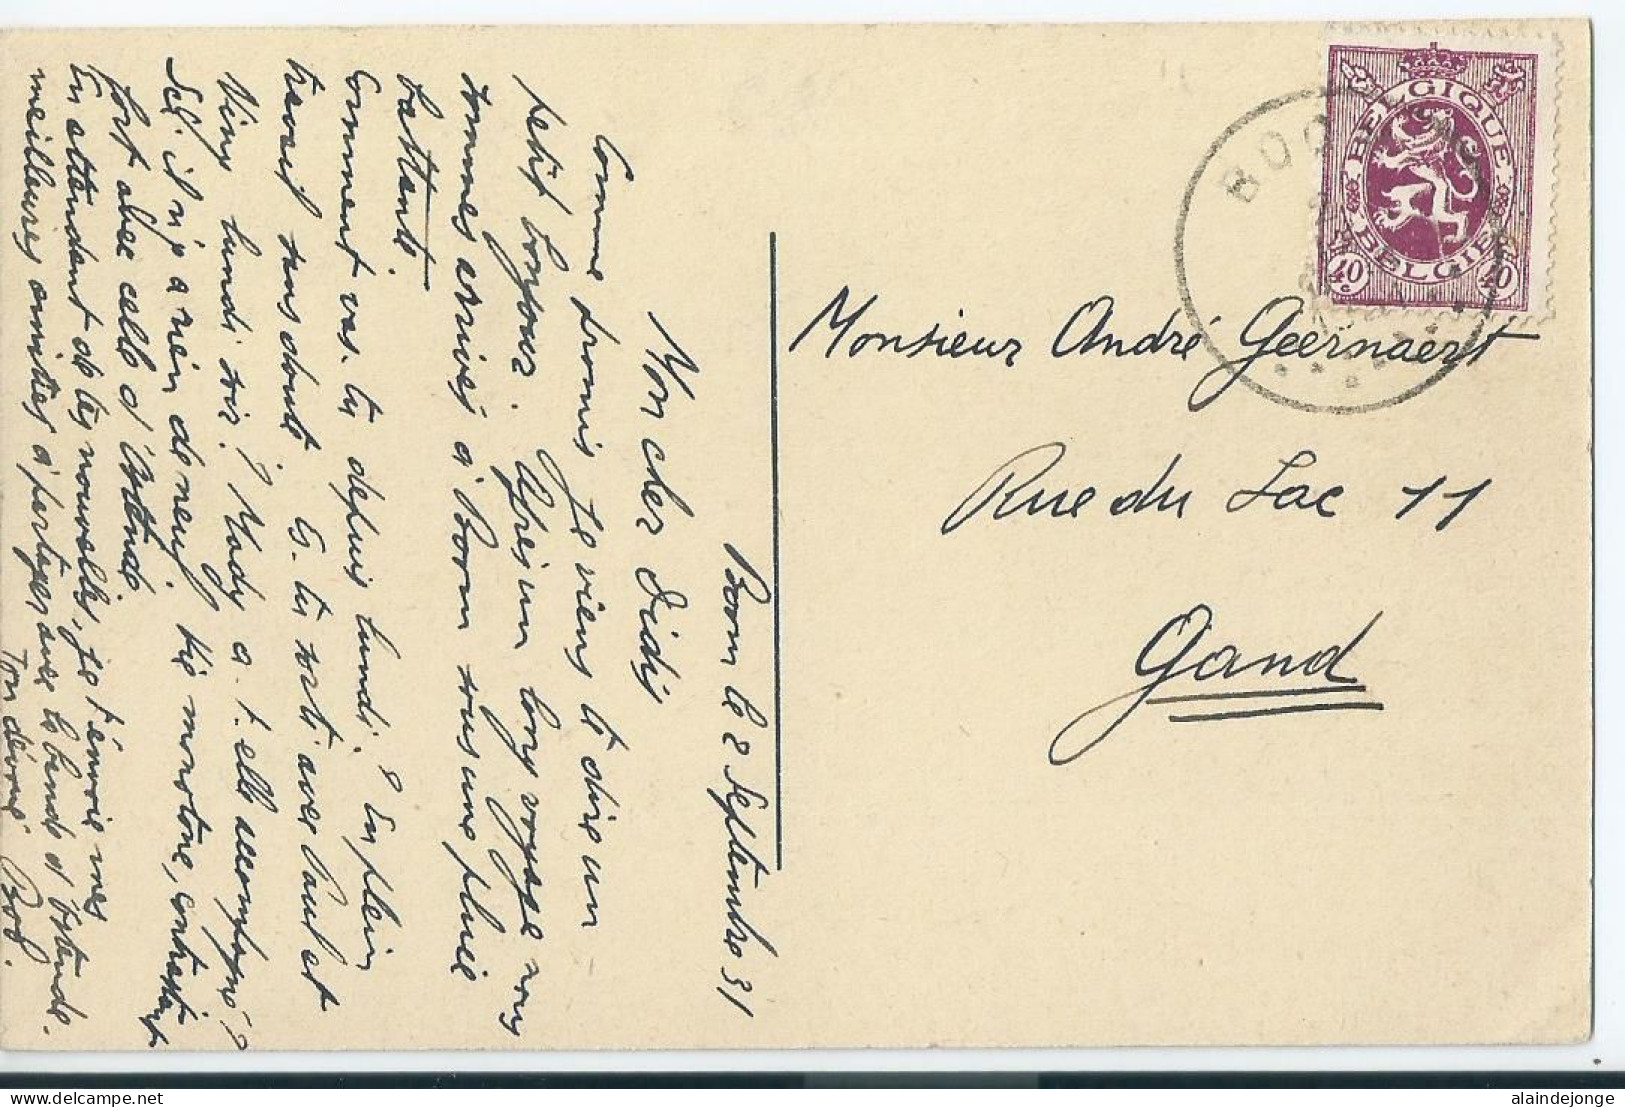 Boom le 2 Septembre 31
Mon cher Didy
Comme promis je viens te dire un
petit bonjour. Après un long voyage nous
sommes arrivés à Boom sous une pluie
battante.
Comment vas-tu depuis lundi? En plein
travail sans doute. Es-tu sorti avec Paul et
Viny lundi soir? Mady a-t-elle accompagné?
Ici il n'y a rien de neuf. Vie monotone, contrastant
fort avec celle d'Ostende
En attendant de tes nouvelles, je t'envoie mes
meilleures amitiés à partager avec la bande d'Ostende.
Ton dévoué Bob.
Monsieur André Geernaert
Rue du Lac 11
Gand
BELGIQUE
BELGIE
40c
40c
BOO
alaindejonge